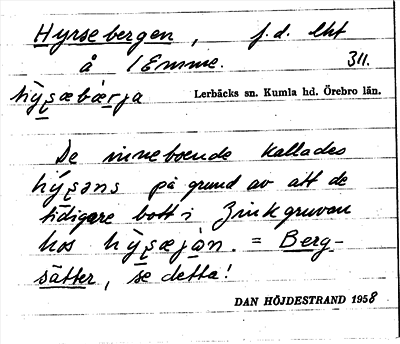 Hyrsebergen, f.d. lht
å 1 Emme. 311.
hy̆ʂæbærja Lerbäcks sn. Kumla hd. Örebro län.
De inneboende kallades
hýʂəns på grund av att de
tidigare bott i Zinkgruvan
hos hy̆ʂæjàn. = Berg-
sätter, se detta!
DAN HÖJDESTRAND 1958